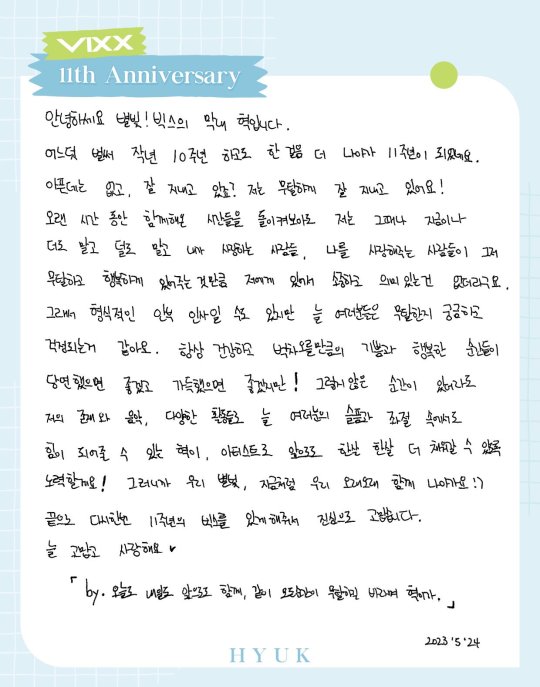 VIXX
11th Anniversary
안녕하세요 별빛! 빅스의 막내 혁입니다.
어느덧 벌써 작년 10주년 하고도 한 걸음 더 나아가 11주년이 되었네요.
아픈데는 없고, 잘 지내고 있죠? 저는 무탈하게 잘 지내고 있어요!
오랜 시간 동안 함께해온 시간들을 돌이켜보아도 저는 그때나 지금이나
더도 말고 덜도 말고 내가 사랑하는 사람들, 나를 사랑해주는 사람들이 그저
무탈하고 행복하게 있어주는 것만큼 저에게 있어서 소중하고 의미 있는건 없더라구요.
그래서 형식적인 안부 인사일 수도 있지만 늘 여러분들은 무탈한지 궁금하고
걱정되는거 같아요. 항상 건강하고 벅차오를만큼의 기쁨과 행복한 순간들이
당연했으면 좋겠고 가득했으면 좋겠지만! 그렇지 않은 순간이 있더라도
저의 존재와 음악, 다양한 활동들로 늘 여러분의 슬픔과 좌절 속에서도
힘이 되어줄 수 있는 혁이, 아티스트로 앞으로도 한산 한살 더 채워갈 수 있도록
노력할게요! 그러니까 우리 별빛, 지금처럼 우리 오래오래 함께 나아가요!:)
끝으로 다시한번 11주년의 빅스를 있게 해주셔서 진심으로 고맙습니다.
늘 고맙고 사랑해요 ♥
「by. 오늘도 내일도 앞으로도 함께, 같이 오랫동안 무탈하길 바라며 혁이가.」
2023 '5 '24
HYUK